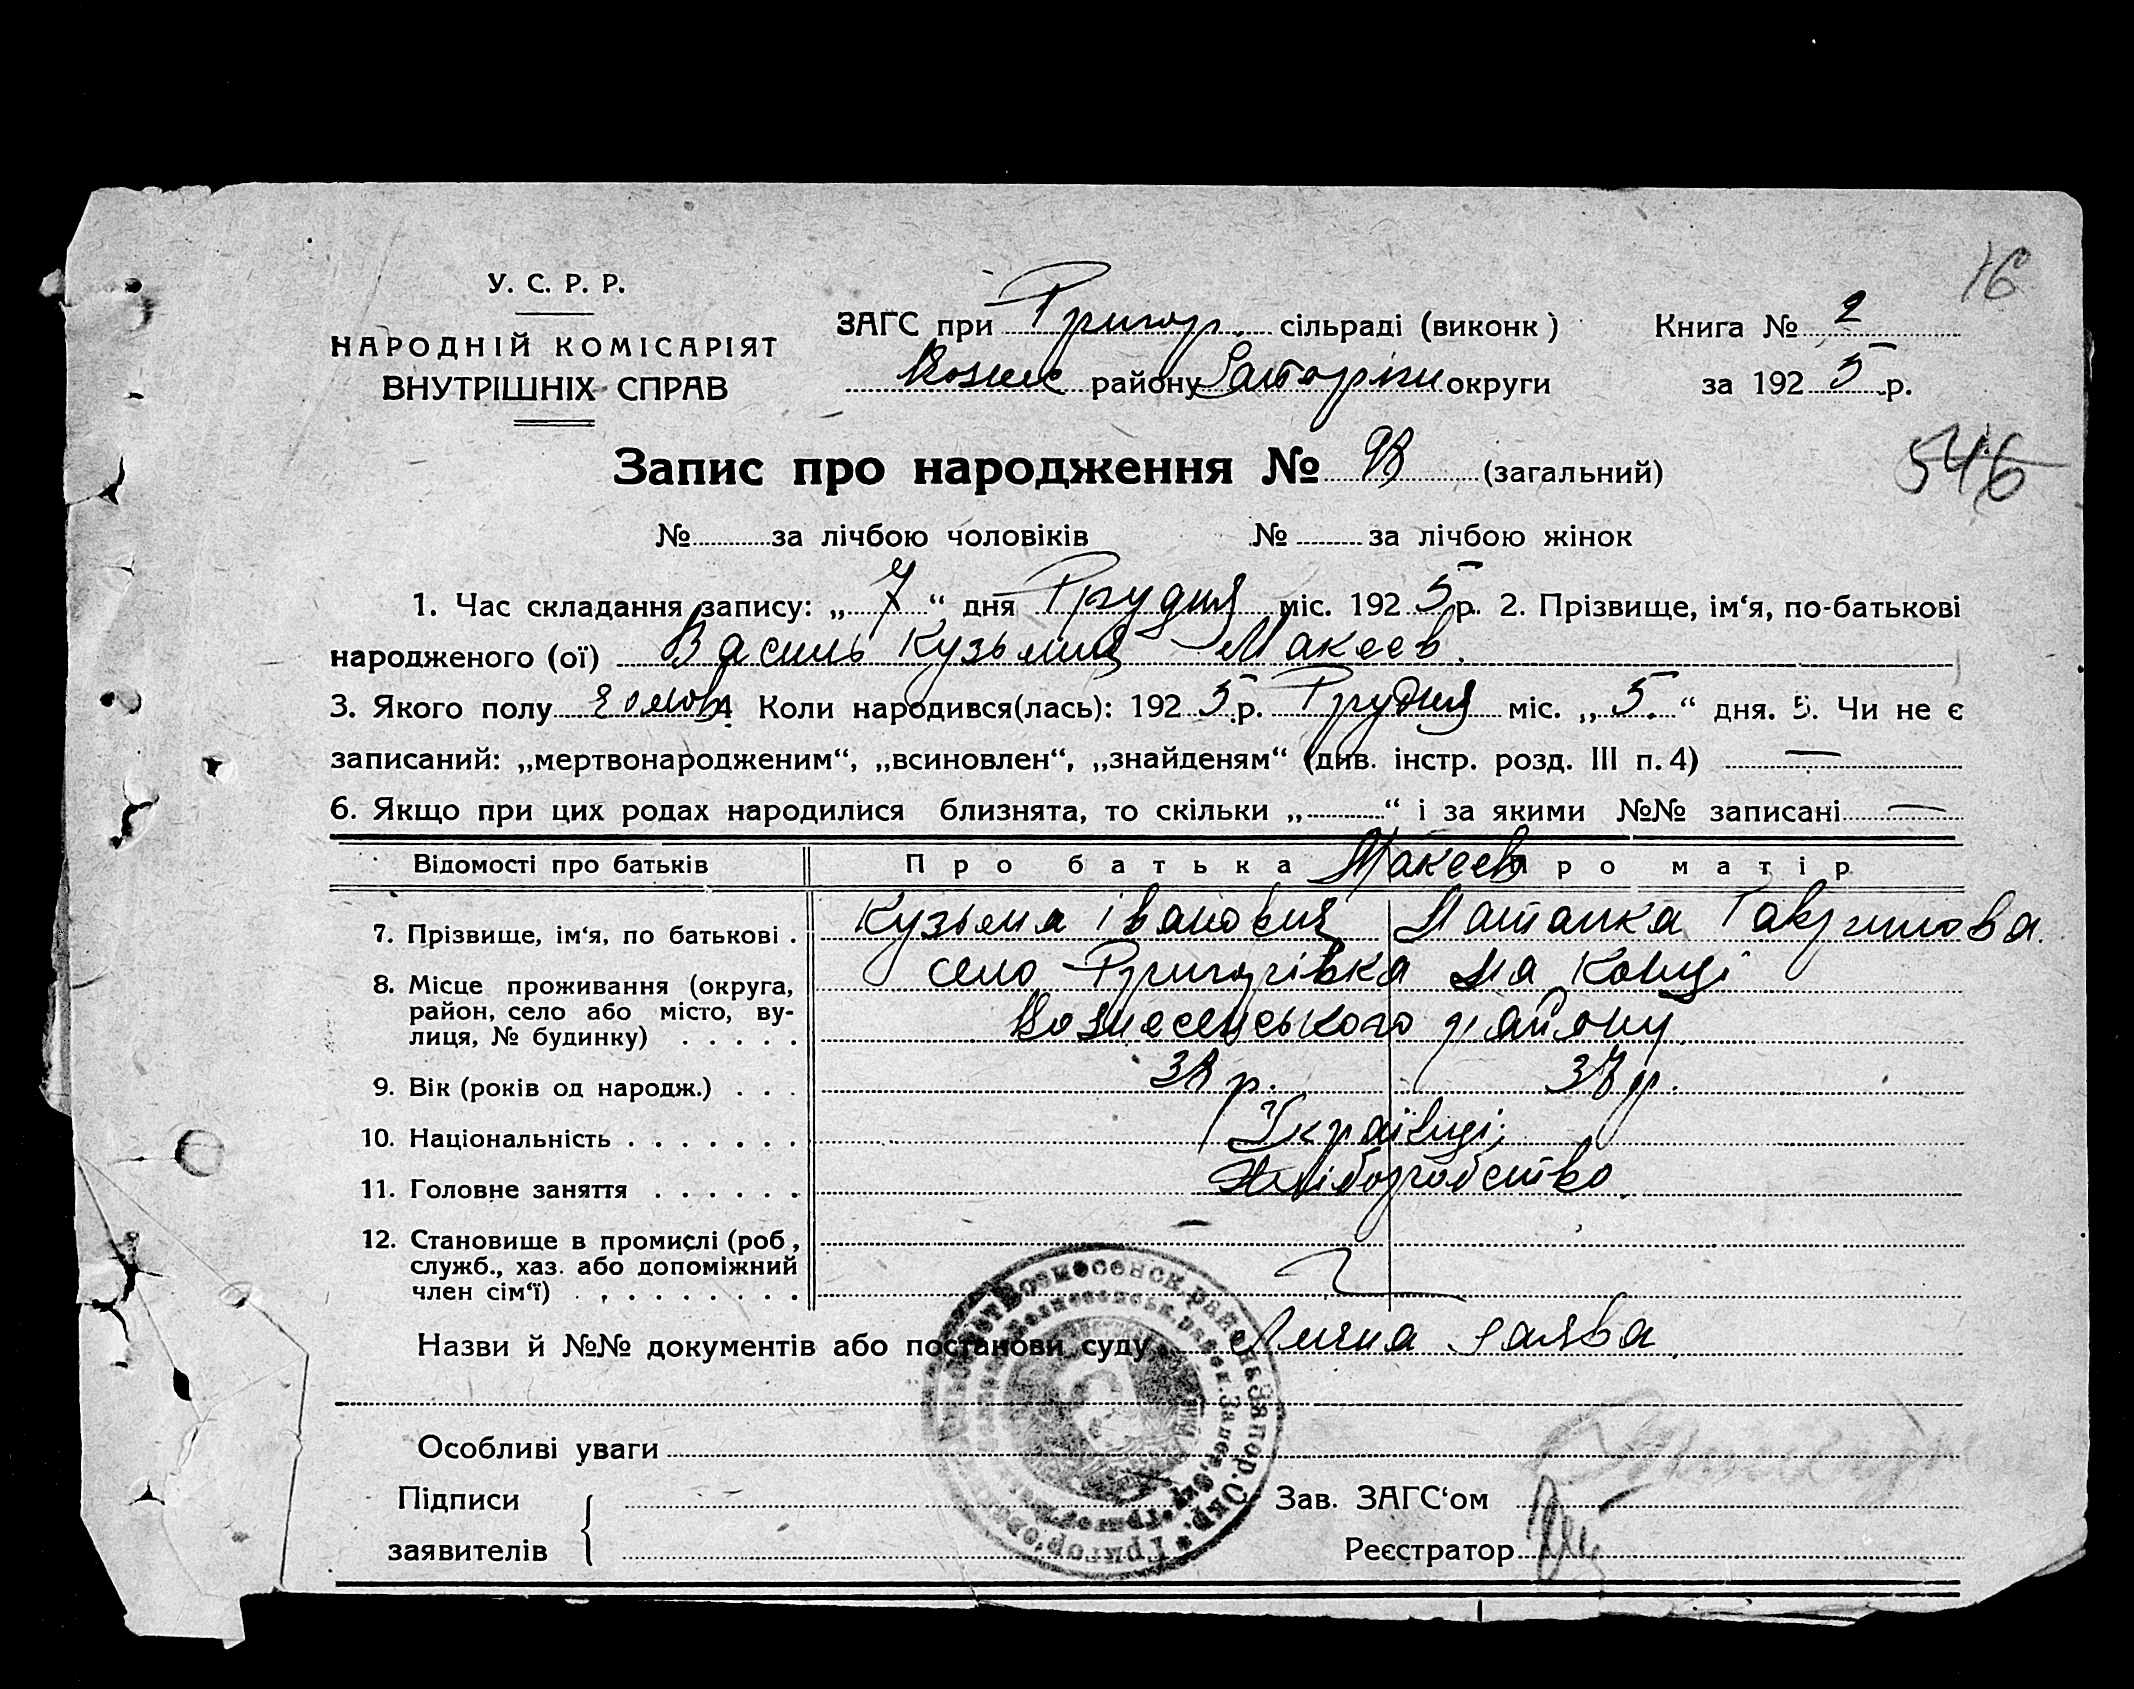 16
У. С. Р. Р.
НАРОДНІЙ КОМІСАРІЯТ
ВНУТРІШНІХ СПРАВ
ЗАГС при Григор. сільраді (виконк)
Вознес району Запоріжи округи
Книга № 2
за 1925 р.
Запис про народження № 98 (загальний)
546
№ за лічбою чоловіків № за лічбою жінок
1. Час складання запису: „ 7 “ дня Грудня міс. 1925 р. 2. Прізвище, ім‘я, по-батькові
народженого (ої) Василь Кузьмич Макеев.
3. Якого полу чолов. 4 Коли народився(лась): 1925 р. Грудня міс. „ 5. “ дня. 5. Чи не є
записаний: „мертвонародженим“, „всиновлен“, „знайденям“ (див. інстр. розд. III п. 4) —
6. Якщо при цих родах народилися близнята, то скільки „ “ і за якими №№ записані —
Відомості про батьків Про батька Макеев Про матір
7. Прізвище, ім‘я, по батькові . Кузьма Іванович Наталка Гаврилова.
8. Місце проживання (округа, село Григорівка на Конці
район, село або місто, ву-
лиця, № будинку) . . . . . Вознесенського району
9. Вік (років од народж.) . . . 38 р. 37 р.
10. Національність . . . . . . . Українці;
11. Головне заняття . . . . . . Хліборобство.
12. Становище в промислі (роб,
служб., хаз. або допоміжний
член сім‘ї) . . . . . . . . .
Назви й №№ документів або постанови суду Лична заява.
Особливі уваги
Підписи
заявителів
Зав. ЗАГС‘ом
Реєстратор